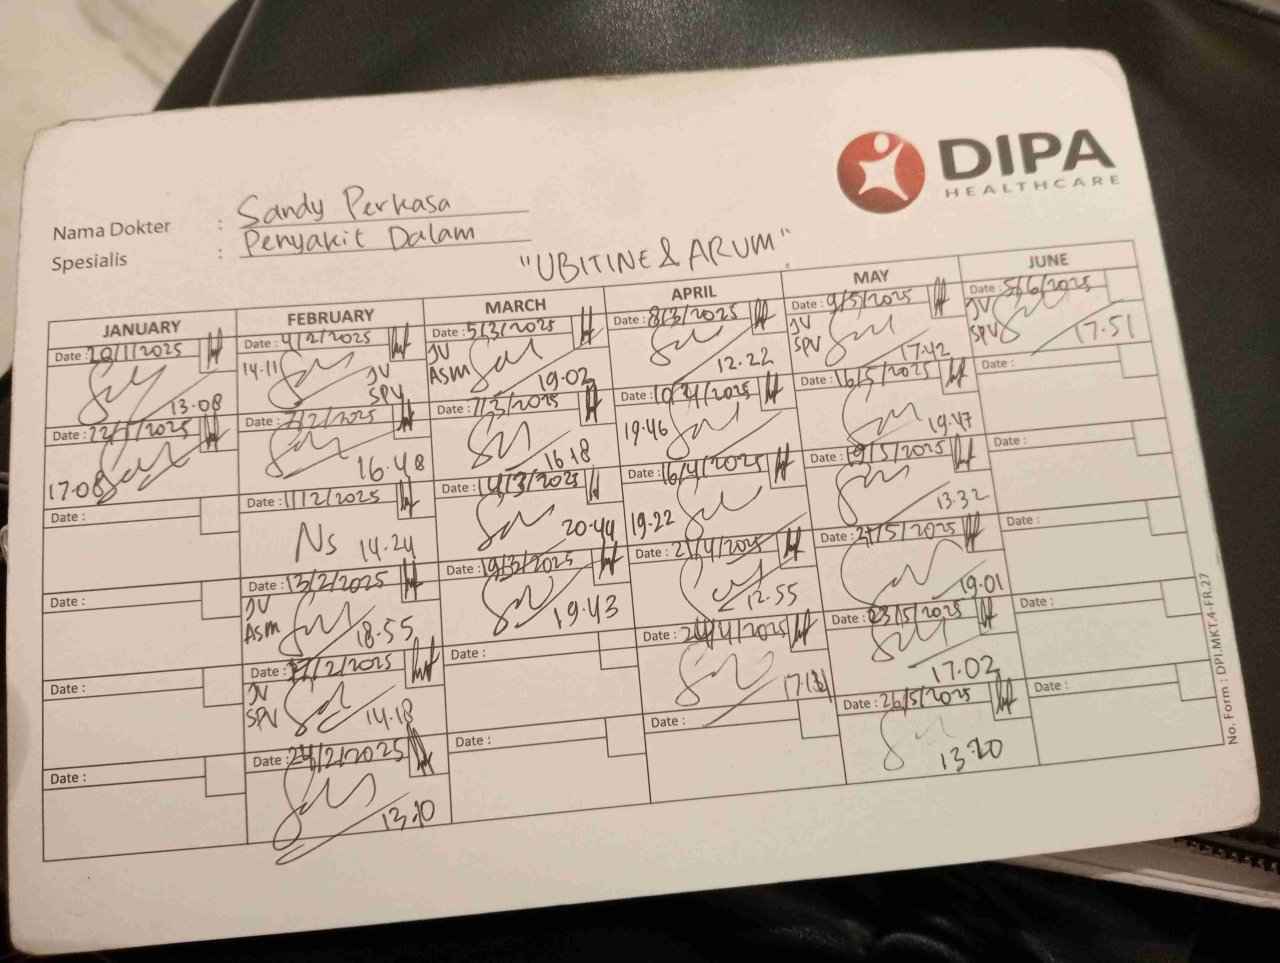 DIPA
HEALTHCARE
Nama Dokter : Sandy Perkasa
Spesialis : Penyakit Dalam
"UBITINE & ARUM"
JANUARY
Date : 20/1/2025
13.08
Date : 22/1/2025
17.08
Date :
Date :
Date :
Date :
FEBRUARY
Date : 4/2/2025
14.11
JV
SPV
Date : 7/2/2025
16.48
Date : 11/2/2025
Ns 14.24
Date : 13/2/2025
JV
ASM
18.55
Date : 17/2/2025
JV
SPV
14.18
Date : 24/2/2025
13.10
MARCH
Date : 5/3/2025
JV
ASM
19.02
Date : 7/3/2025
16.18
Date : 14/3/2025
20.44
Date : 19/3/2025
19.43
Date :
Date :
APRIL
Date : 8/3/2025
12.22
Date : 10/4/2025
19.46
Date : 16/4/2025
19.22
Date : 21/4/2025
12.55
Date : 24/4/2025
Date :
MAY
Date : 9/5/2025
JV
SPV
17.42
Date : 16/5/2025
19.47
Date : 19/5/2025
13.32
Date : 21/5/2025
19.01
Date : 23/5/2025
17.02
Date : 26/5/2025
13.20
JUNE
Date : 5/6/2025
JV
SPV
17.51
Date :
Date :
Date :
Date :
Date :
No. Form : DPI.MKT.4-FR.27